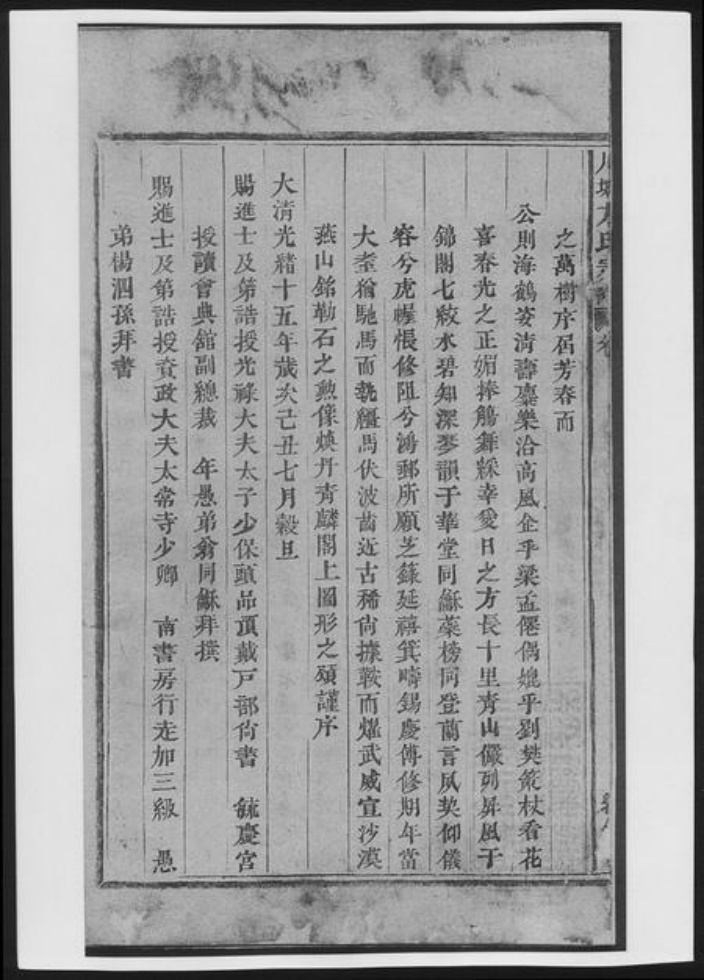 之萬樹序屆芳春而
公則海鶴姿清壽臺樂洽高風企乎梁孟僊偶媲乎劉樊策杖看花
喜春光之正媚捧觴舞綵幸愛日之方長十里青山儼列屏風于
錦閣七絃水碧知深琴韻于華堂同龢蘂榜同登蘭言夙契仰儀
容兮虎幄悵修阻兮鴻郵所願芝籙延禧箕疇錫慶傅修期年當
大耋猶馳馬而執韁馬伏波齒近古稀尚據鞍而燿武威宣沙漠
燕山銘勒石之勲像煥丹青麟閣上圖形之頌謹序
大清光緒十五年歲次己丑七月穀旦
賜進士及第誥授光祿大夫太子少保頭品頂戴戸部尙書 毓慶宮
授讀會典館副總裁 年愚弟翁同龢拜撰
賜進士及第誥授資政大夫太常寺少卿 南書房行走加三級 愚
弟楊泗孫拜書